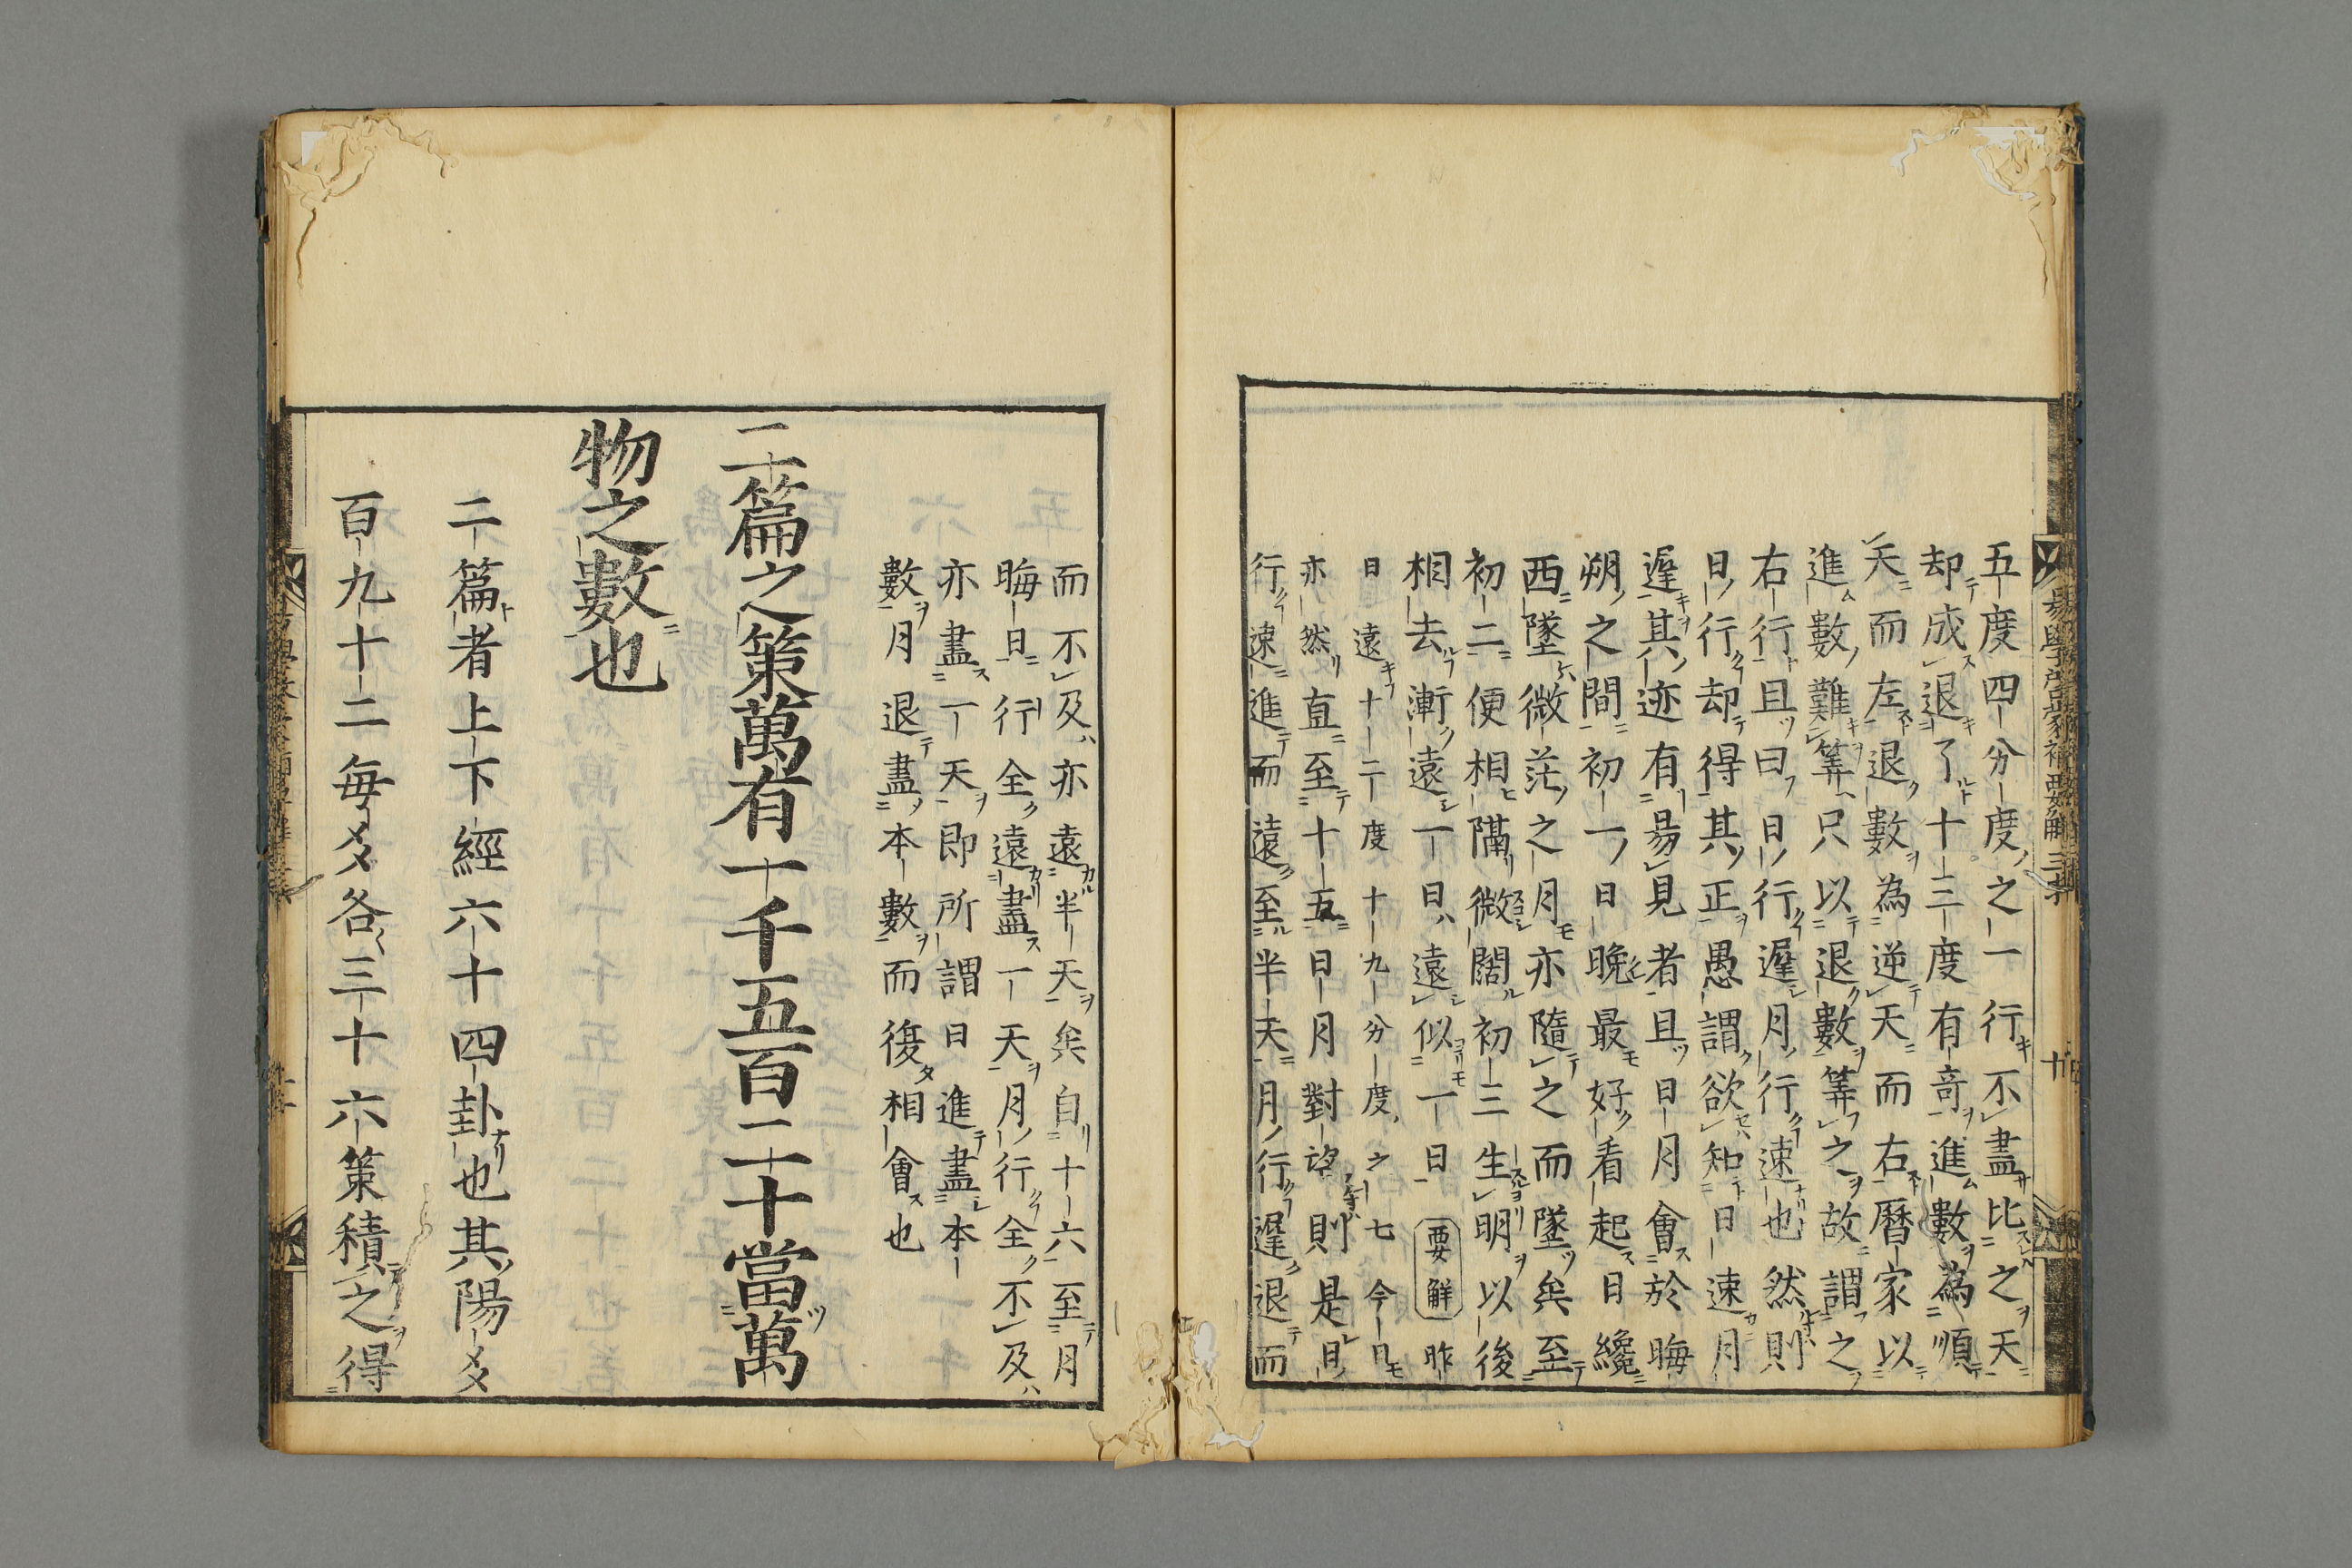 五度四分度之一行不盡比之天
却成退了十三度有竒進數為順
天而左退數為逆天而右曆家以
進數難筭只以退數筭之故謂之
右行且曰日行遲月行速也然則
日行却得其正愚謂欲知日速月
遲其迹有易見者且日月會於晦
朔之間初一日晚最好看起日纔
西墜微茫之月亦隨之而墜矣至
初二便相隔微闊初三生明以後
相去漸遠一日遠似一日 要解 昨
日遠十二度十九分度之七今日
亦然直至十五日月對望則是日
行速進而遠至半天月行遲退而
而不及亦遠半天矣自十六至月
晦日行全遠盡一天月行全不及
亦盡一天即所謂日進盡本
數月退盡本數而復相會也
二篇之策萬有一千五百二十當萬
物之數也
二篇者上下經六十四卦也其陽爻
百九十二每爻各三十六策積之得